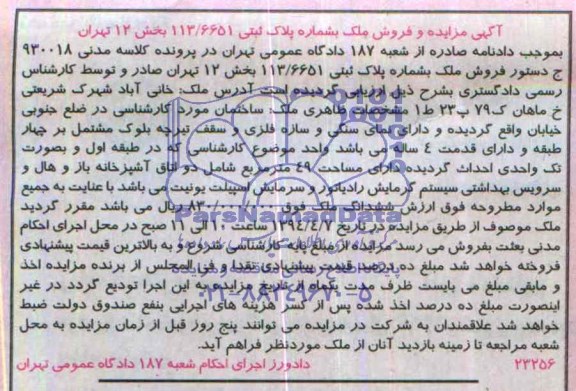 آگهی مزایده و فروش ملک بشماره پلاک ثبتی ۱۱۳/۶۶۵۱ بخش ۱۲ تهران
بموجب دادنامه صادره از شعبه ۱۸۷ دادگاه عمومی تهران در پرونده کلاسه مدنی ۹۳۰۰۱۸
ج دستور فروش ملک بشماره پلاک ثبتی ۱۱۳/۶۶۵۱ بخش ۱۲ تهران صادر و توسط کارشناس
رسمی دادگستری بشرح ذیل ارزیابی گردیده است. آدرس ملک: خانی آباد شهرک شریعتی
خ ماهان ک۷۹ پ۲۳ ط۱ مشخصات ظاهری ملک: ساختمان مورد کارشناسی در ضلع جنوبی
خیابان واقع گردیده و دارای نمای سنگی و سازه فلزی و سقف تیرچه بلوک مشتمل بر چهار
طبقه و دارای قدمت ٤ ساله می باشد واحد موضوع کارشناسی که در طبقه اول و بصورت
تک واحدی احداث گردیده دارای مساحت ٤۹ متر مربع شامل دو اتاق آشپزخانه باز و هال و
سرویس بهداشتی سیستم گرمایش رادیاتور و سرمایش اسپیلت یونیت می باشد با عنایت به جمیع
موارد مطروحه فوق ارزش ششدانگ ملک فوق ریال می باشد مقرر گردید
ملک موصوف از طریق مزایده در تاریخ ۱۳۹٤/٤/۷ ساعت ۱۰ الی ۱۱ صبح در محل اجرای احکام
مدنی بعثت بفروش می رسد مزایده از مبلغ پایه کارشناسی شروع و به بالاترین قیمت پیشنهادی
فروخته خواهد شد مبلغ ده درصد قیمت پیشنهادی نقدا و فی المجلس از برنده مزایده اخذ
و مابقی مبلغ می بایست ظرف مدت یکماه از تاریخ مزایده به این اجرا تودیع گردد در غیر
اینصورت مبلغ ده درصد اخذ شده پس از کسر هزینه های اجرایی بنفع صندوق دولت ضبط
خواهد شد علاقمندان به شرکت در مزایده می توانند پنج روز قبل از زمان مزایده به محل
شعبه مراجعه تا زمینه بازدید آنان از ملک موردنظر فراهم آید.
۲۳۲۵۶ دادورز اجرای احکام شعبه ۱۸۷ دادگاه عمومی تهران
ParsNamadData
۰۲۱-۸۸۳٤۹۶۷۰-۵